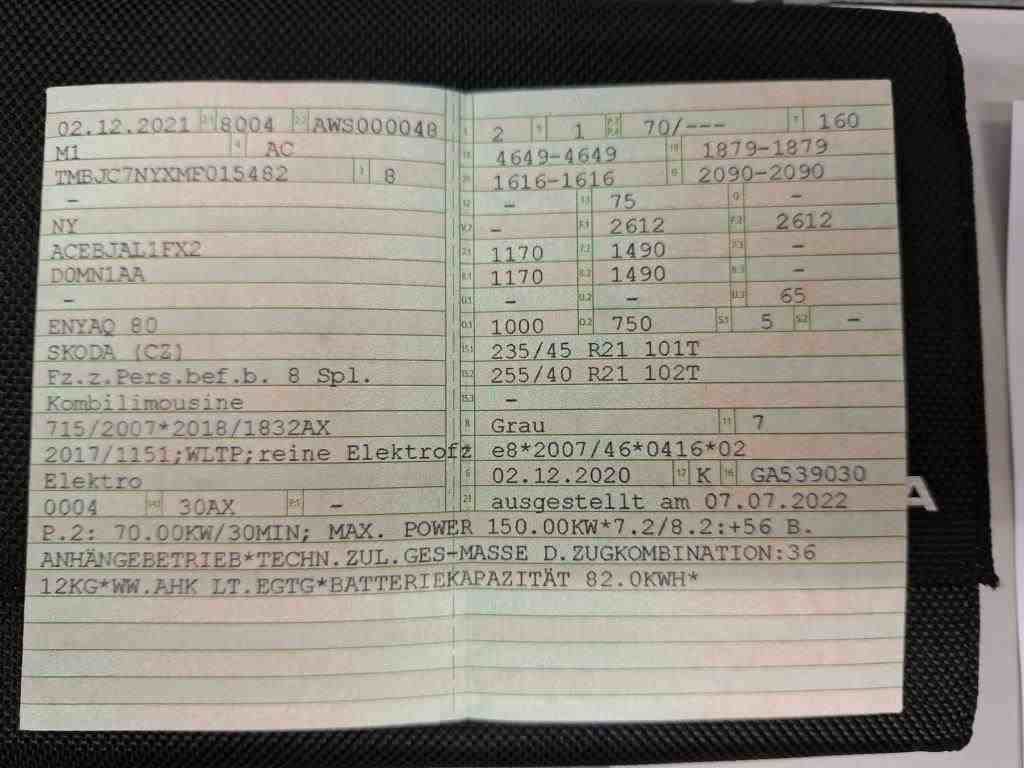 02.12.2021 2.1 8004 2.2 AWS000048
M1 4 AC
TMBJC7NYXMF015482 3 8
-
NY
ACEBJAL1FX2
D0MN1AA
-
ENYAQ 80
SKODA (CZ)
Fz.z.Pers.bef.b. 8 Spl.
Kombilimousine
715/2007*2018/1832AX
2017/1151;WLTP;reine Elektrofz
Elektro
0004 30AX -
2 9 1 P.2 P.4 70/--- T 160
18 4649-4649 19 1879-1879
20 1616-1616 G 2090-2090
12 - 13 75 Q -
V.7 - F.1 2612 F.2 2612
7.1 1170 7.2 1490 7.3 -
8.1 1170 8.2 1490 8.3 -
U.1 - U.2 - U.3 65
O.1 1000 O.2 750 S.1 5 S.2 -
15.1 235/45 R21 101T
15.2 255/40 R21 102T
15.3 -
R Grau 11 7
e8*2007/46*0416*02
6 02.12.2020 17 K 16 GA539030
21 ausgestellt am 07.07.2022
P.2: 70.00KW/30MIN; MAX. POWER 150.00KW*7.2/8.2:+56 B.
ANHÄNGEBETRIEB*TECHN.ZUL.GES-MASSE D.ZUGKOMBINATION:36
12KG*WW.AHK LT.EGTG*BATTERIEKAPAZITÄT 82.0KWH*
A